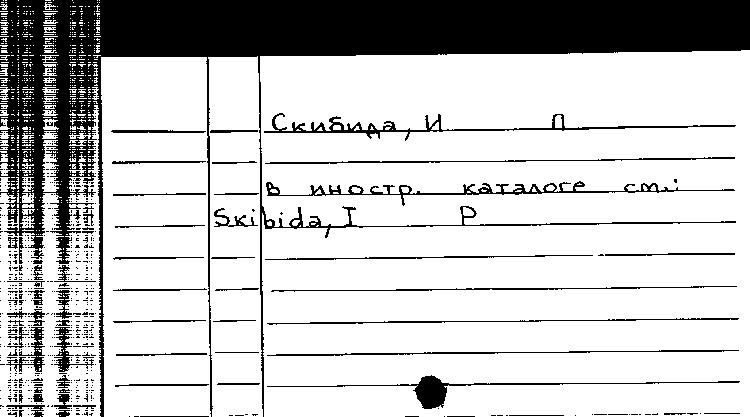 Скибида, И П
в иностр. каталоге см.:
Skibida, I P